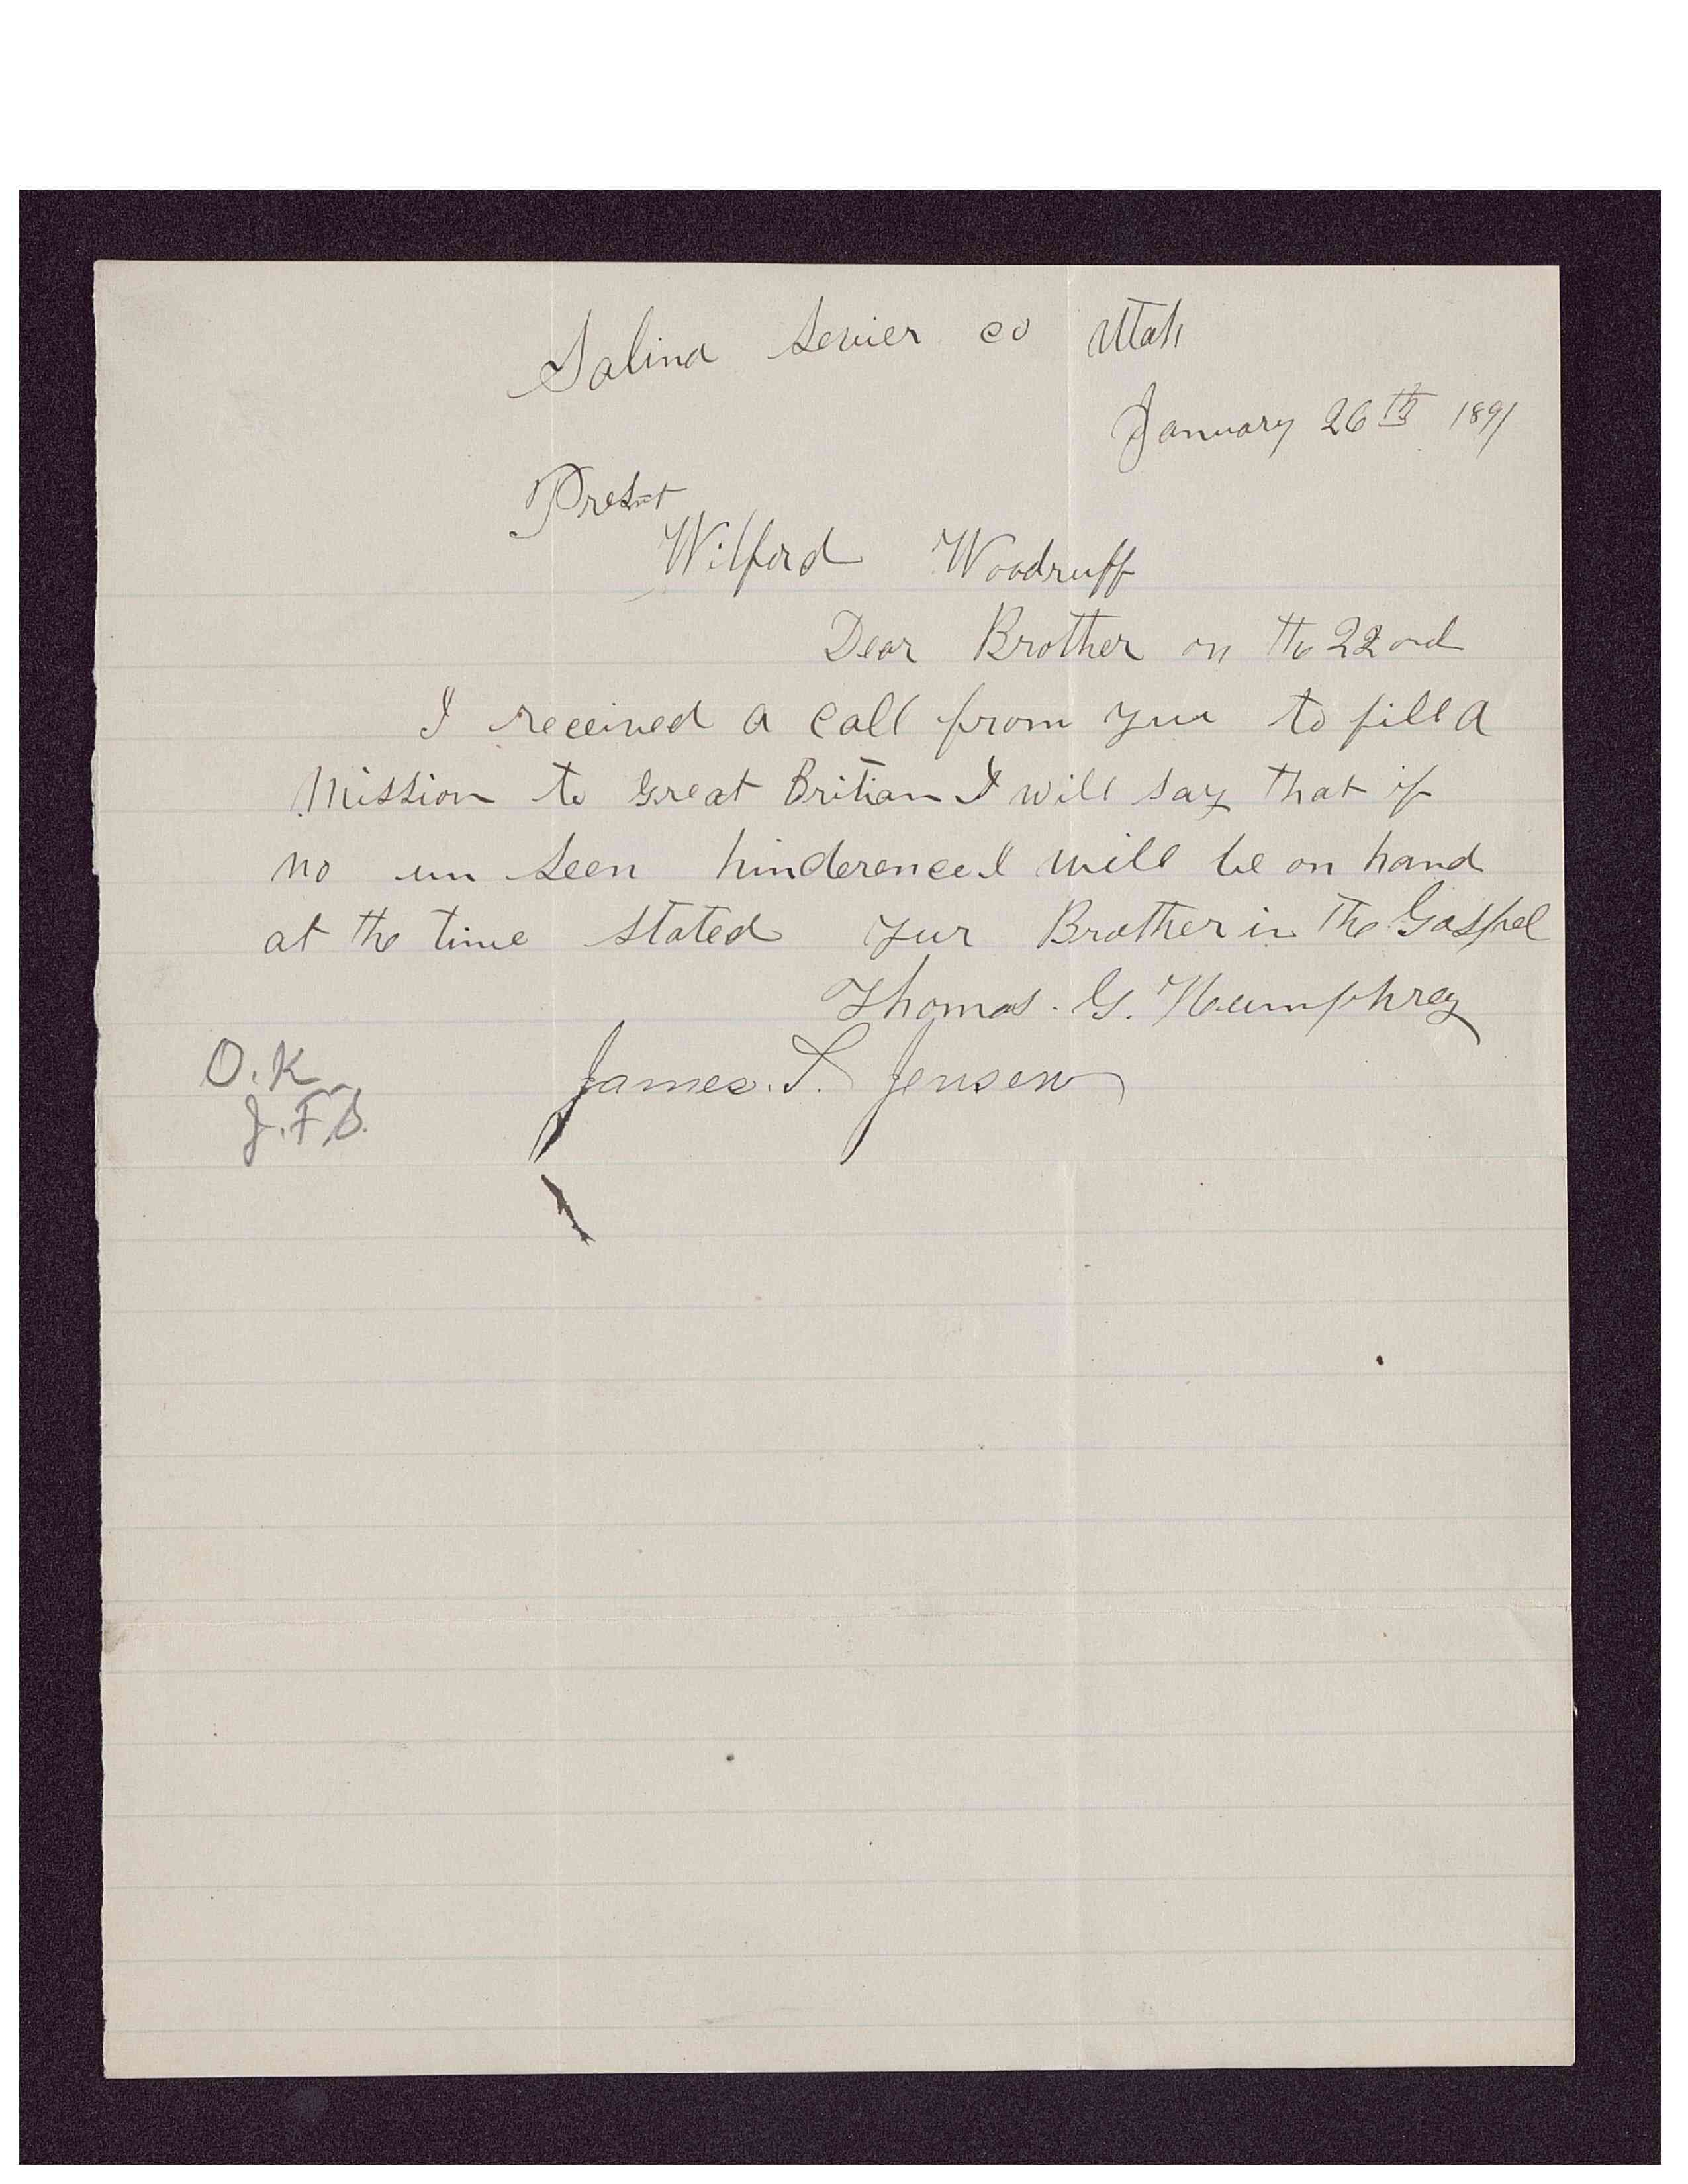 Salina Sevier co Utah
January 26th 1891
Prest
Wilford Woodruff
Dear Brother on the 22ond
I received a call from you to fill a
Mission to Great Britian I will say that if
no un seen hinderence I will be on hand
at the time stated your Brother in the Gospel
Thomas. G. Humphrey
James. S. Jensen
O.K.
J.F.S.